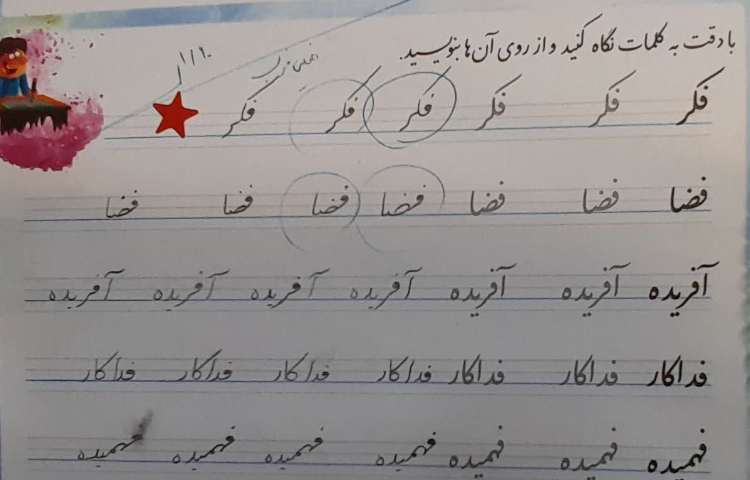 با دقت به کلمات نگاه کنید و از روی آن‌ها بنویسید.
فکر فکر فکر فکر فکر فکر
فضا فضا فضا فضا فضا فضا فضا
آفریده آفریده آفریده آفریده آفریده آفریده آفریده
فداکار فداکار فداکار فداکار فداکار فداکار فداکار
فهمیده فهمیده فهمیده فهمیده فهمیده فهمیده فهمیده